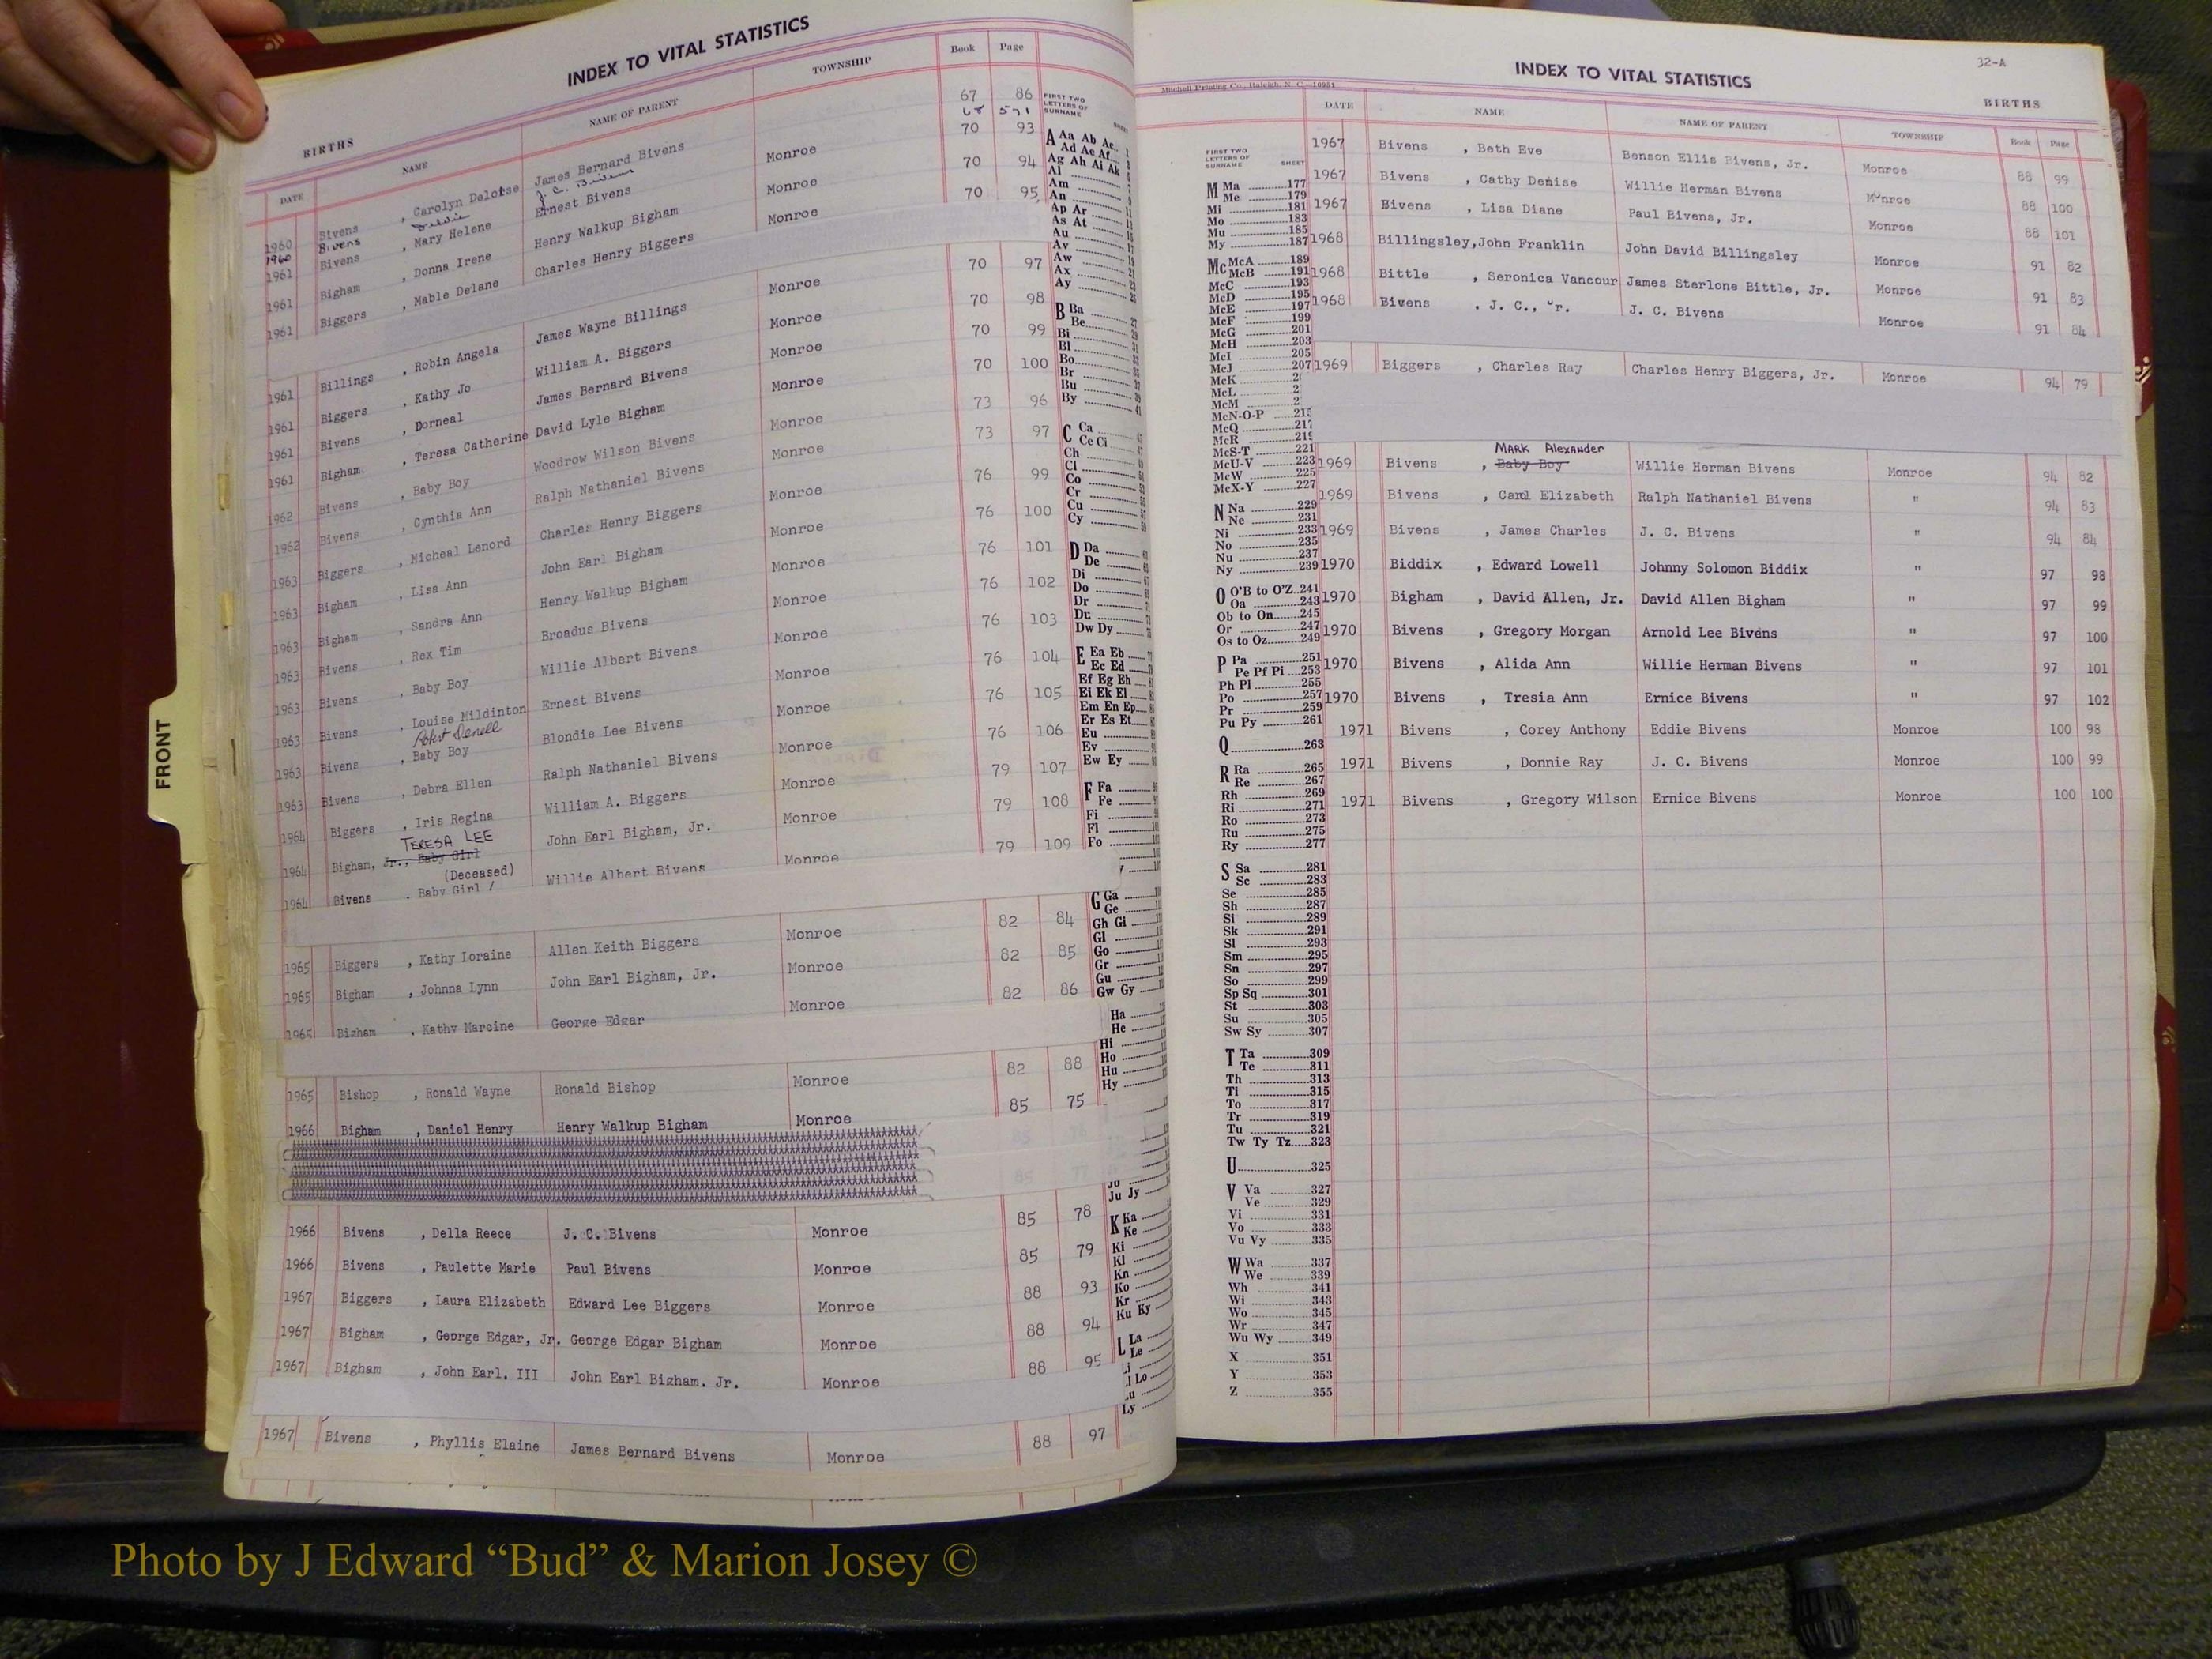 INDEX TO VITAL STATISTICS
BIRTHS
DATE NAME NAME OF PARENT TOWNSHIP Book Page
1960 Bivens , Carolyn Deloise James Bernard Bivens 67 86
1960 Bivens J. C. Bivens 68 571
1961 Bivens , Mary Helene Ernest Bivens Monroe 70 93
1961 Bigham , Donna Irene Henry Walkup Bigham Monroe 70 94
1961 Biggers , Mable Delane Charles Henry Biggers Monroe 70 95
1961 Billings , Robin Angela James Wayne Billings Monroe 70 97
1961 Biggers , Kathy Jo William A. Biggers Monroe 70 98
1961 Bivens , Dorneal James Bernard Bivens Monroe 70 99
1961 Bigham , Teresa Catherine David Lyle Bigham Monroe 70 100
1962 Bivens , Baby Boy Woodrow Wilson Bivens Monroe 73 96
1962 Bivens , Cynthia Ann Ralph Nathaniel Bivens Monroe 73 97
1963 Biggers , Micheal Lenord Charles Henry Biggers Monroe 76 99
1963 Bigham , Lisa Ann John Earl Bigham Monroe 76 100
1963 Bigham , Sandra Ann Henry Walkup Bigham Monroe 76 101
1963 Bivens , Rex Tim Broadus Bivens Monroe 76 102
1963 Bivens , Baby Boy Willie Albert Bivens Monroe 76 103
1963 Bivens , Louise Mildinton Ernest Bivens Monroe 76 104
1963 Bivens , Baby Boy Blondie Lee Bivens Monroe 76 105
1963 Bivens , Debra Ellen Ralph Nathaniel Bivens Monroe 76 106
1964 Biggers , Iris Regina William A. Biggers Monroe 79 107
TERESA LEE
1964 Bigham, Jr., Baby Girl John Earl Bigham, Jr. Monroe 79 108
(Deceased)
1964 Bivens , Baby Girl / Willie Albert Bivens Monroe 79 109
1965 Biggers , Kathy Loraine Allen Keith Biggers Monroe 82 84
1965 Bigham , Johnna Lynn John Earl Bigham, Jr. Monroe 82 85
1965 Bigham , Kathy Marcine George Edgar Monroe 82 86
1965 Bishop , Ronald Wayne Ronald Bishop Monroe 82 88
1966 Bigham , Daniel Henry Henry Walkup Bigham Monroe 85 75
1966 Bivens , Della Reece J. C. Bivens Monroe 85 78
1966 Bivens , Paulette Marie Paul Bivens Monroe 85 79
1967 Biggers , Laura Elizabeth Edward Lee Biggers Monroe 88 93
1967 Bigham , George Edgar, Jr. George Edgar Bigham Monroe 88 94
1967 Bigham , John Earl, III John Earl Bigham, Jr. Monroe 88 95
1967 Bivens , Phyllis Elaine James Bernard Bivens Monroe 88 97
FRONT
FIRST TWO
LETTERS OF
SURNAME
A Aa Ab Ac
Ad Ae Af
Ag Ah Ai Ak
Al
Am
An
Ap Ar
As At
Au
Av
Aw
Ax
Ay
B Ba
Be
Bi
Bl
Bo
Br
Bu
By
C Ca
Ce Ci
Ch
Cl
Co
Cr
Cu
Cy
D Da
De
Di
Do
Dr
Du
Dw Dy
E Ea Eb
Ec Ed
Ef Eg Eh
Ei Ek El
Em En Ep
Er Es Et
Eu
Ev
Ew Ey
F Fa
Fe
Fi
Fl
Fo
G Ga
Ge
Gh Gi
Gl
Go
Gr
Gu
Gw Gy
Ha
He
Hi
Ho
Hu
Hy
Jo
Ju Jy
K Ka
Ke
Ki
Kl
Kn
Ko
Kr
Ku Ky
L La
Le
Ly
32-A
INDEX TO VITAL STATISTICS
Mitchell Printing Co., Raleigh, N. C.—10951
BIRTHS
DATE NAME NAME OF PARENT TOWNSHIP Book Page
1967 Bivens , Beth Eve Benson Ellis Bivens, Jr. Monroe 88 99
1967 Bivens , Cathy Denise Willie Herman Bivens Monroe 88 100
1967 Bivens , Lisa Diane Paul Bivens, Jr. Monroe 88 101
1968 Billingsley,John Franklin John David Billingsley Monroe 91 82
1968 Bittle , Seronica Vancour James Sterlone Bittle, Jr. Monroe 91 83
1968 Bivens , J. C., Jr. J. C. Bivens Monroe 91 84
1969 Biggers , Charles Ray Charles Henry Biggers, Jr. Monroe 94 79
MARK Alexander
1969 Bivens , Baby Boy Willie Herman Bivens Monroe 94 82
1969 Bivens , Carol Elizabeth Ralph Nathaniel Bivens " 94 83
1969 Bivens , James Charles J. C. Bivens " 94 84
1970 Biddix , Edward Lowell Johnny Solomon Biddix " 97 98
1970 Bigham , David Allen, Jr. David Allen Bigham " 97 99
1970 Bivens , Gregory Morgan Arnold Lee Bivens " 97 100
1970 Bivens , Alida Ann Willie Herman Bivens " 97 101
1970 Bivens , Tresia Ann Ernice Bivens " 97 102
1971 Bivens , Corey Anthony Eddie Bivens Monroe 100 98
1971 Bivens , Donnie Ray J. C. Bivens Monroe 100 99
1971 Bivens , Gregory Wilson Ernice Bivens Monroe 100 100
FIRST TWO
LETTERS OF
SURNAME SHEET
M Ma 177
Me 179
Mi 181
Mo 183
Mu 185
My 187
Mc McA 189
McB 191
McC 193
McD 195
McE 197
McF 199
McG 201
McH 203
McI 205
McJ 207
McK
McL
McM
McN-O-P 215
McQ 217
McR 219
McS-T 221
McU-V 223
McW 225
McX-Y 227
N Na 229
Ne 231
Ni 233
No 235
Nu 237
Ny 239
O O'B to O'Z 241
Oa 243
Ob to On 245
Or 247
Os to Oz 249
P Pa 251
Pe Pf Pi 253
Ph Pl 255
Po 257
Pr 259
Pu Py 261
Q 263
R Ra 265
Re 267
Rh 269
Ri 271
Ro 273
Ru 275
Ry 277
S Sa 281
Sc 283
Se 285
Sh 287
Si 289
Sk 291
Sl 293
Sm 295
Sn 297
So 299
Sp Sq 301
St 303
Su 305
Sw Sy 307
T Ta 309
Te 311
Th 313
Ti 315
To 317
Tr 319
Tu 321
Tw Ty Tz 323
U 325
V Va 327
Ve 329
Vi 331
Vo 333
Vu Vy 335
W Wa 337
We 339
Wh 341
Wi 343
Wo 345
Wr 347
Wu Wy 349
X 351
Y 353
Z 355
Photo by J Edward “Bud” & Marion Josey ©